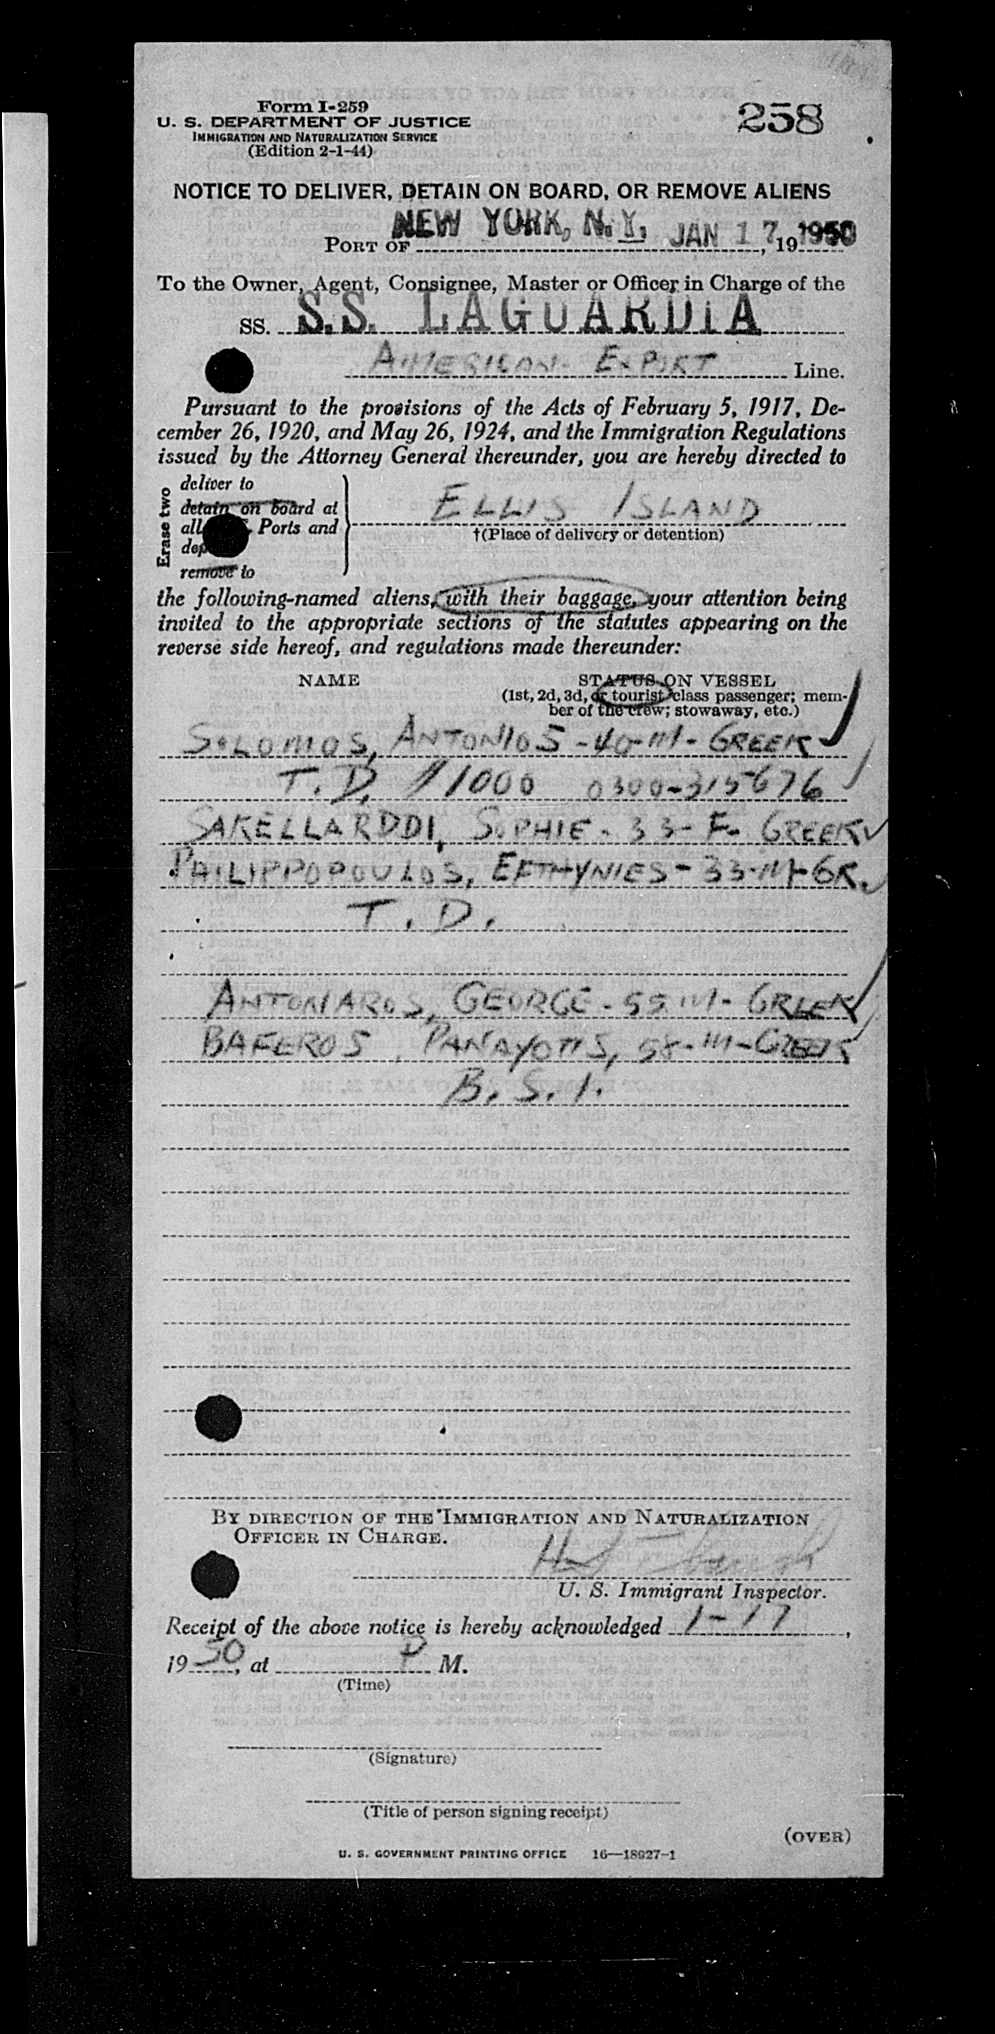 Form I-259
U. S. DEPARTMENT OF JUSTICE
IMMIGRATION AND NATURALIZATION SERVICE
(Edition 2-1-44)
258
NOTICE TO DELIVER, DETAIN ON BOARD, OR REMOVE ALIENS
PORT OF NEW YORK, N. Y., JAN 17, 19 1950
To the Owner, Agent, Consignee, Master or Officer in Charge of the
SS. S.S. LAGUARDIA
AMERICAN EXPORT Line.
Pursuant to the provisions of the Acts of February 5, 1917, De-
cember 26, 1920, and May 26, 1924, and the Immigration Regulations
issued by the Attorney General thereunder, you are hereby directed to
Erase two
deliver to
detain on board at
all Ports and
remove to
ELLIS ISLAND
†(Place of delivery or detention)
the following-named aliens, with their baggage, your attention being
invited to the appropriate sections of the statutes appearing on the
reverse side hereof, and regulations made thereunder:
NAME
STATUS ON VESSEL
(1st, 2d, 3d, or tourist class passenger; mem-
ber of the crew; stowaway, etc.)
SOLOMOS, ANTONIOS - 40 - M - GREEK
T. D. 1000 0300-315676
SAKELLARDDI, SOPHIE - 33 - F - GREEK
PHILIPPOPOULOS, EFTHYNIES - 33 - M - GR.
T. D.
ANTONAROS, GEORGE - 55 M - GREEK
BAFEROS, PANAYOTIS, 58 - M - GREEK
B. S. I.
BY DIRECTION OF THE IMMIGRATION AND NATURALIZATION
OFFICER IN CHARGE.
U. S. Immigrant Inspector.
Receipt of the above notice is hereby acknowledged 1-17,
19 50, at P M.
(Time)
(Signature)
(Title of person signing receipt)
(OVER)
U. S. GOVERNMENT PRINTING OFFICE 16—18927-1